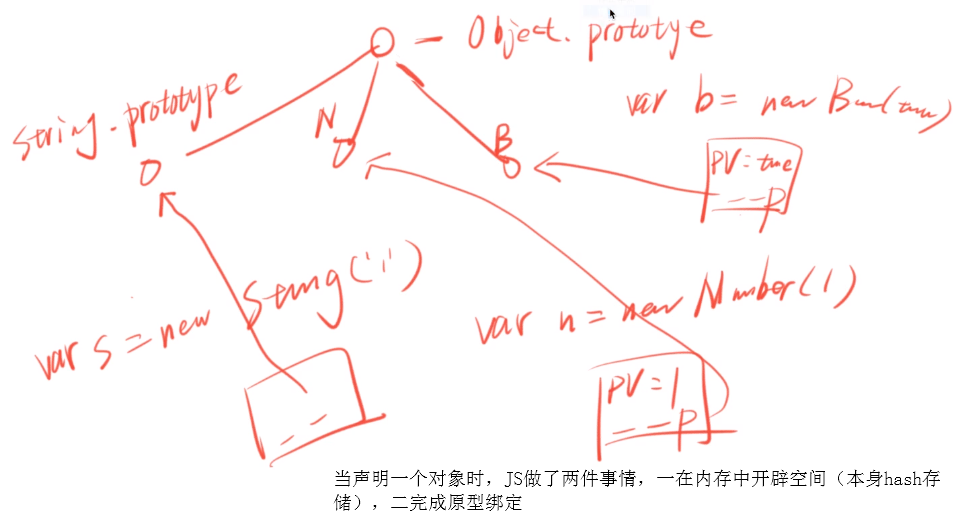 — Object.prototye
String.prototype
N
B
var b = new Bool(true)
PV = true
--P
var s = new String('1')
var n = new Number(1)
PV = 1
--P
--
当声明一个对象时，JS做了两件事情，一在内存中开辟空间（本身hash存
储），二完成原型绑定